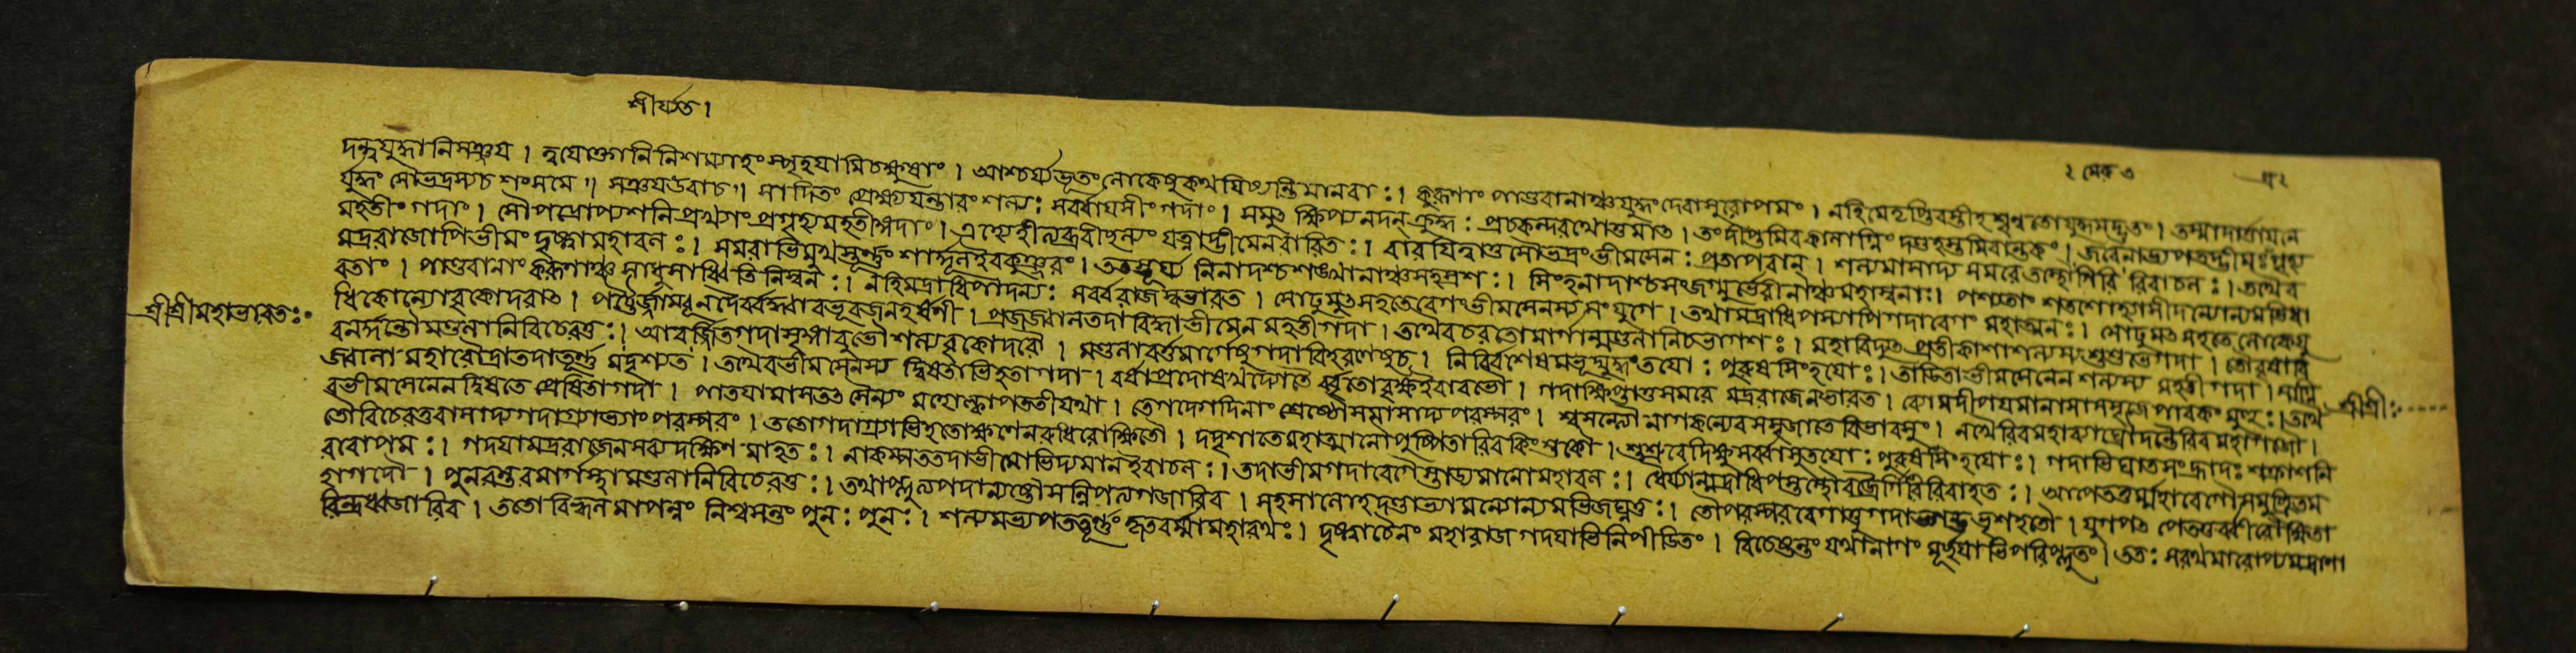 শীর্য্যত।
দন্দ্বযুদ্ধানিসঞ্জয়। ত্বয়োক্তানি নিশম্যাহং স্পৃহয়ামি চক্ষুষাং। আশ্চর্য্যভূতং লোকেষু কথয়িষ্যন্তি মানবাঃ। কুরূণাং পাণ্ডবানাঞ্চ যুদ্ধং দেবাসুরোপমং। নহি মে তৃপ্তিরস্তীহ শৃণ্বতো যুদ্ধমদ্ভুতং। তস্মাদার্ত্তায়নে
র্যুদ্ধং সৌভদ্রস্য চ শংস মে॥ সঞ্জয় উবাচ॥ সাদিতং প্রেক্ষ্য যন্তারং শল্যঃ সর্ব্বায়সীং গদাং। সমুৎক্ষিপ্য নদন্ ক্রুদ্ধঃ প্রচস্কন্দ রথোত্তমাৎ। তং দীপ্তমিব কালাগ্নিং দণ্ডহস্তমিবান্তকং। জবেনাভ্যপতদ্ভীমঃ প্রগৃহ্য
মহতীং গদাং। সৌভদ্রোপ্যশনিপ্রখ্যাং প্রগৃহ্য মহতীঙ্গদাং। এহ্যেহীত্যব্রবীচ্ছল্যং যত্নাদ্ভীমেন বারিতঃ। বারয়িত্বা তু সৌভদ্রং ভীমসেনঃ প্রতাপবান্। শল্যমাসাদ্য সমরে তস্থৌ গিরিরিবাচলঃ। তথৈব
মদ্ররাজোপি ভীমং দৃষ্ট্বা মহাবলঃ। সসারাভিমুখস্তূর্ণং শার্দ্দূল ইব কুঞ্জরং। ততস্তূর্য্যনিনাদশ্চ শঙ্খানাঞ্চ সহস্রশঃ। সিংহনাদাশ্চ সংজগ্মুর্ভেরীনাঞ্চ মহাস্বনাঃ। পশ্যতাং শতশো হ্যাসীদন্যোন্যমভিধা
বতাং। পাণ্ডবানাং কুরূণাঞ্চ সাধু সাধ্বিতি নিস্বনঃ। নহি মদ্রাধিপাদন্যঃ সর্ব্বরাজসু ভারত। সোঢুমুৎসহতে বেগং ভীমসেনস্য সংযুগে। তথা মদ্রাধিপস্যাপি গদাবেগং মহাত্মনঃ। সোঢুমুৎসহতে লোকে যু
শ্রীশ্রীমহাভারতঃ
ধি কোন্যো বৃকোদরাৎ। পট্টৈর্জ্জাম্বূনদৈর্ব্বদ্ধা বভূব জনহর্ষণী। প্রজজ্বাল তদা বিদ্ধা ভীমেন মহতী গদা। তথৈব চরতো মার্গান্মণ্ডলানি চ ভাগশঃ। মহাবিদ্যুৎপ্রতীকাশা শল্যস্য শুশুভে গদা। তৌ বৃষাবি
ব নর্দ্দন্তৌ মণ্ডলানি বিচেরতুঃ। আবর্জ্জিতগদাশৃঙ্গাবুভৌ শল্যবৃকোদরৌ। মণ্ডলাবর্ত্তমার্গেষু গদাবিহরণেষু চ। নির্ব্বিশেষমভূদ্যুদ্ধং তয়োঃ পুরুষসিংহয়োঃ। তাড়িতা ভীমসেনেন শল্যস্য মহতী গদা। সাগ্নি
শ্রীশ্রীঃ
জ্বালা মহারৌদ্রা তদা তূর্ণমদৃশ্যত। তথৈব ভীমসেনস্য দ্বিষতাভিহতা গদা। বর্ষাপ্রদোষে খদ্যোতৈর্বৃতো বৃক্ষ ইবাবভৌ। গদা ক্ষিপ্তা তু সমরে মদ্ররাজেন ভারত। ব্যোম দীপয়মানা সা সসৃজে পাবকং মুহুঃ। তথৈ
ব ভীমসেনেন দ্বিষতে প্রেষিতা গদা। পাতয়ামাস তৎসৈন্যং মহোল্কা পততী যথা। তে গদে গদিনাং শ্রেষ্ঠৌ সমাসাদ্য পরস্পরং। শ্বসন্ত্যৌ নাগকন্যেব সসৃজাতে বিভাবসুং। নখৈরিব মহাব্যাঘ্রৌ দন্তৈরিব মহাগজৌ।
তৌ বিচেরতুরাসাদ্য গদাগ্রাভ্যাং পরস্পরং। ততো গদাগ্রাভিহতৌ ক্ষণেন রুধিরোক্ষিতৌ। দদৃশাতে মহাত্মানৌ পুষ্পিতাবিব কিংশুকৌ। শুশ্রুবে দিক্ষু সর্ব্বাসু তয়োঃ পুরুষসিংহয়োঃ। গদাভিঘাতসংহ্রাদঃ শক্রাশনি
রবোপমঃ। গদয়া মদ্ররাজেন সব্যদক্ষিণমাহতঃ। নাকম্পত তদা ভীমো ভিদ্যমান ইবাচলঃ। তদা ভীমগদাবেগৈস্তাড্যমানো মহাবলঃ। ধৈর্য্যান্মদ্রাধিপস্তস্থৌ বজ্রৈর্গিরিরিবাহতঃ। আপেততুর্ম্মহাবেগৌ সমুচ্ছ্রিতম
হাগদৌ। পুনরন্তরমার্গস্থৌ মণ্ডলানি বিচেরতুঃ। তথাপ্লুত্য পদান্যষ্টৌ সন্নিপত্য গজাবিব। সহসা লোহদণ্ডাভ্যামন্যোন্যমভিজঘ্নতুঃ। তৌ পরস্পরবেগাত্তু গদাভ্যাঞ্চ ভৃশাহতৌ। যুগপৎ পেততুর্ব্বীরৌ ক্ষিতা
বিন্দ্রধ্বজাবিব। ততো বিহ্বলমাপন্নং নিশ্বসন্তং পুনঃ পুনঃ। শল্যমভ্যপতত্তূর্ণং কৃতবর্ম্মা মহারথঃ। দৃষ্ট্বা চৈনং মহারাজ গদয়াভিনিপীড়িতং। বিচেষ্টন্তং যথা নাগং মূর্চ্ছয়াভিপরিপ্লুতং। ততঃ স রথমারোপ্য মদ্রাণা